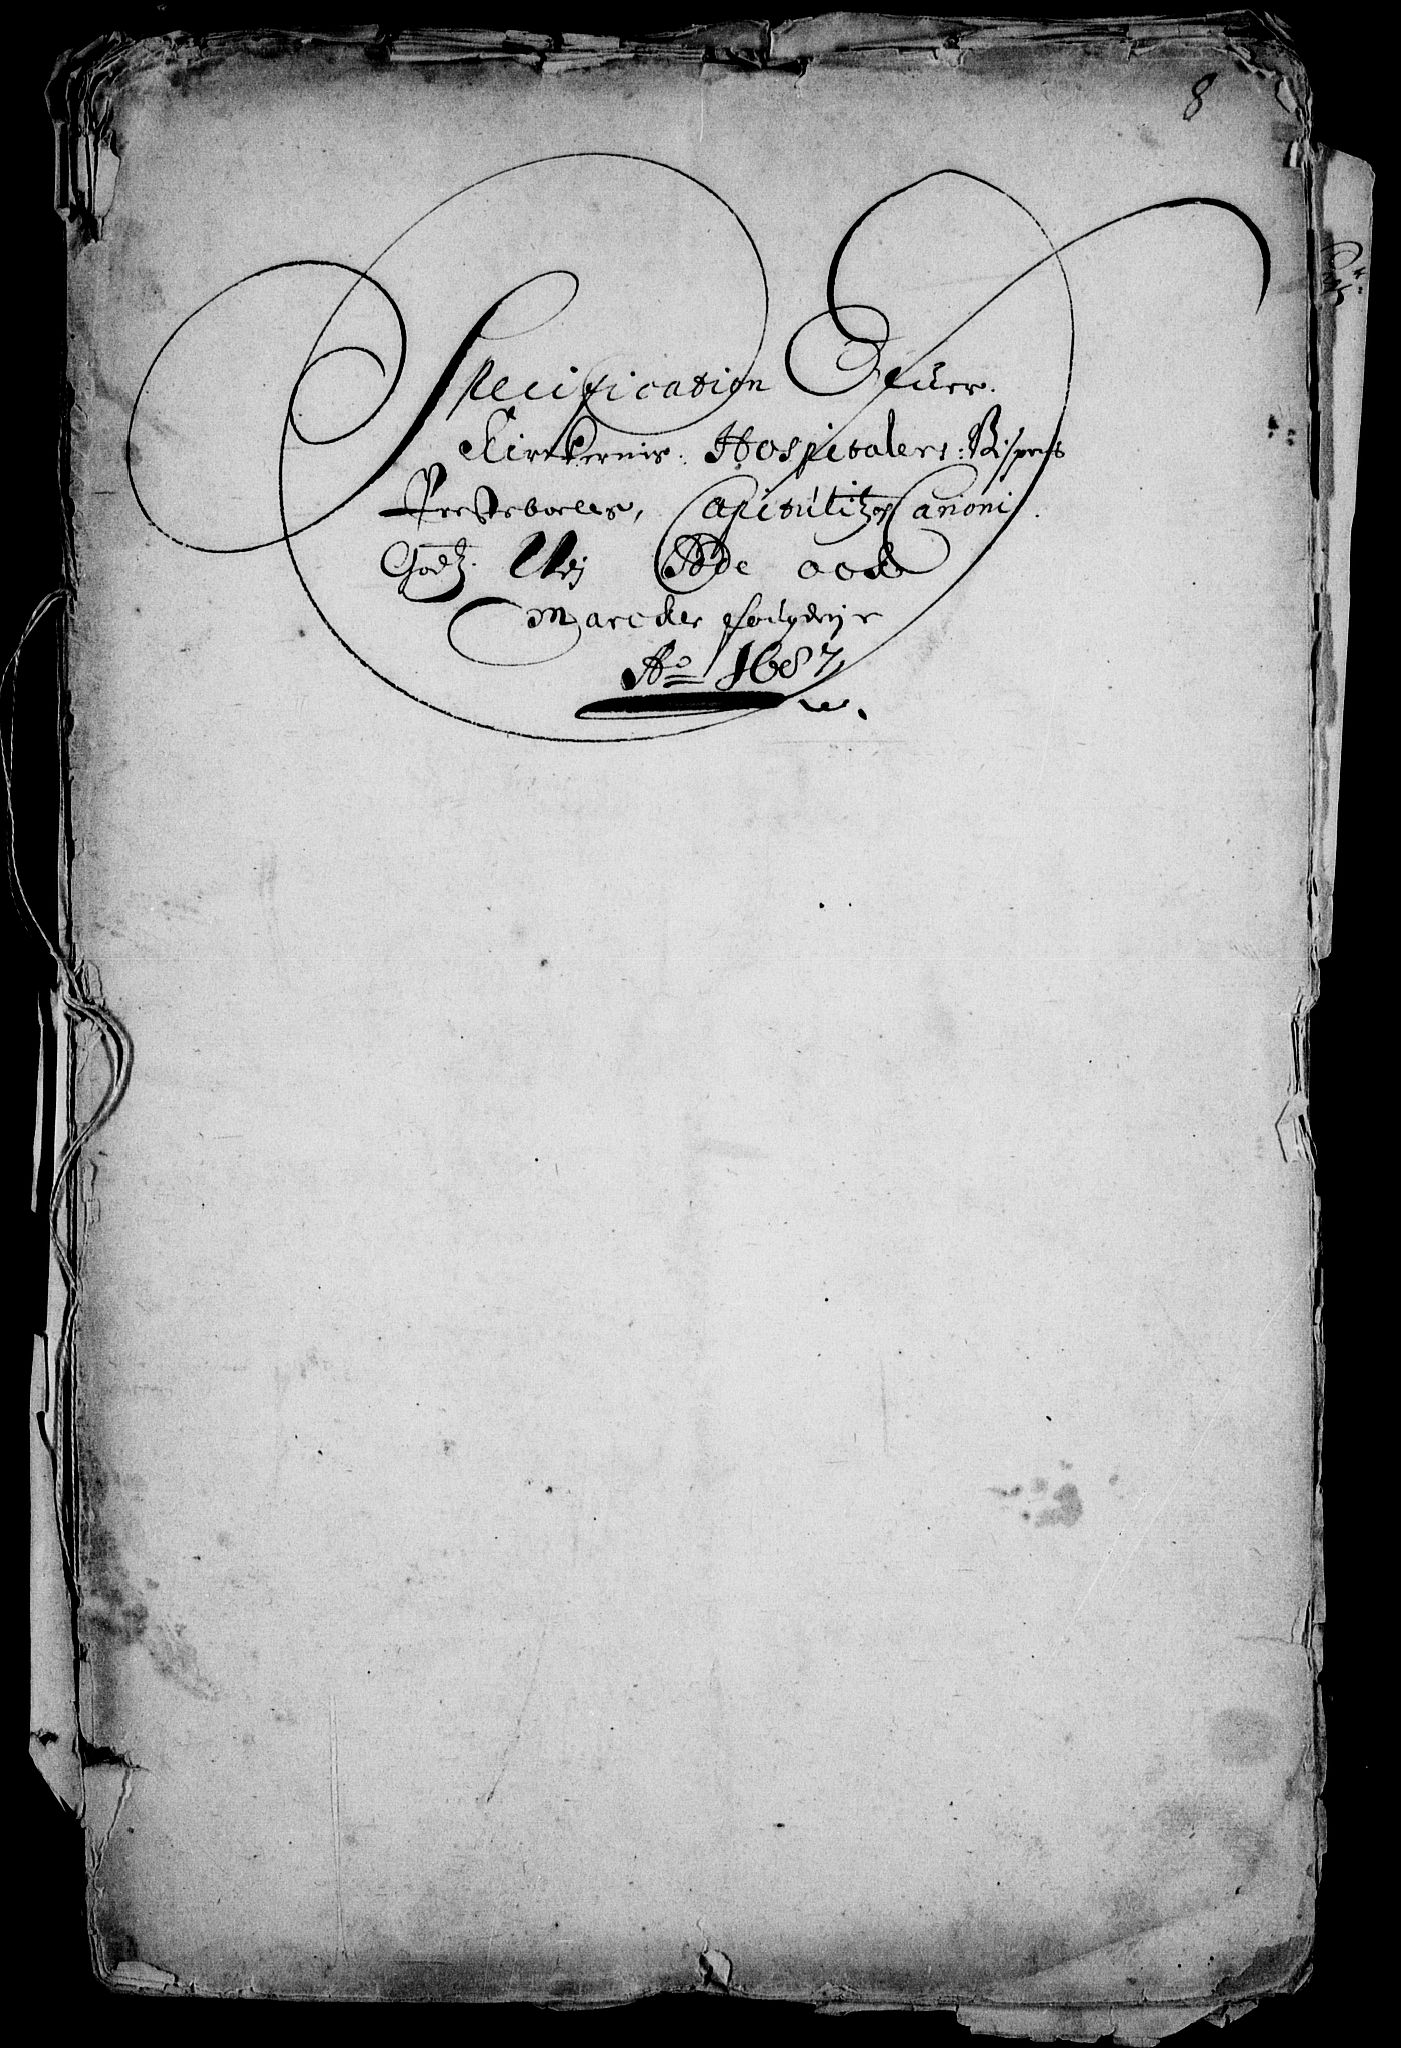 8
Specification Ofuer
Kirckernis: Hospitalers: Bispens
Presteboeles, Capitulitz og Canoni
Godtz. Udj Ode och
Marcker fougderije
Ao 1687